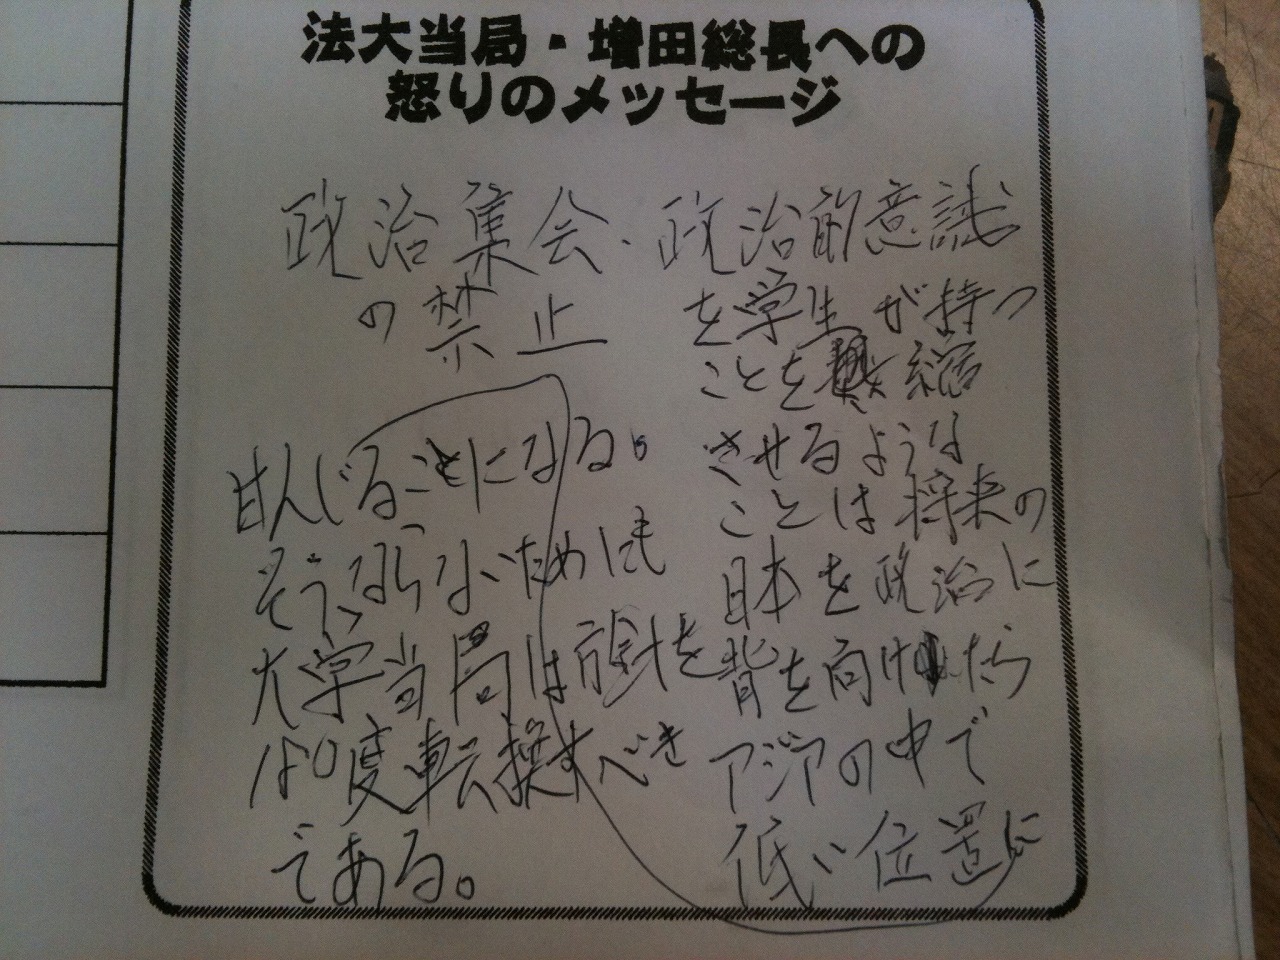 法大当局・増田総長への
怒りのメッセージ
政治集会・政治的意識
の禁止
を学生が持つ
ことを縮
させるような
ことは将来の
日本を政治に
背を向けたら
アジアの中で
低い位置に
甘んじることになる。
そうならないためにも
大学当局は方針を
180度転換すべき
である。